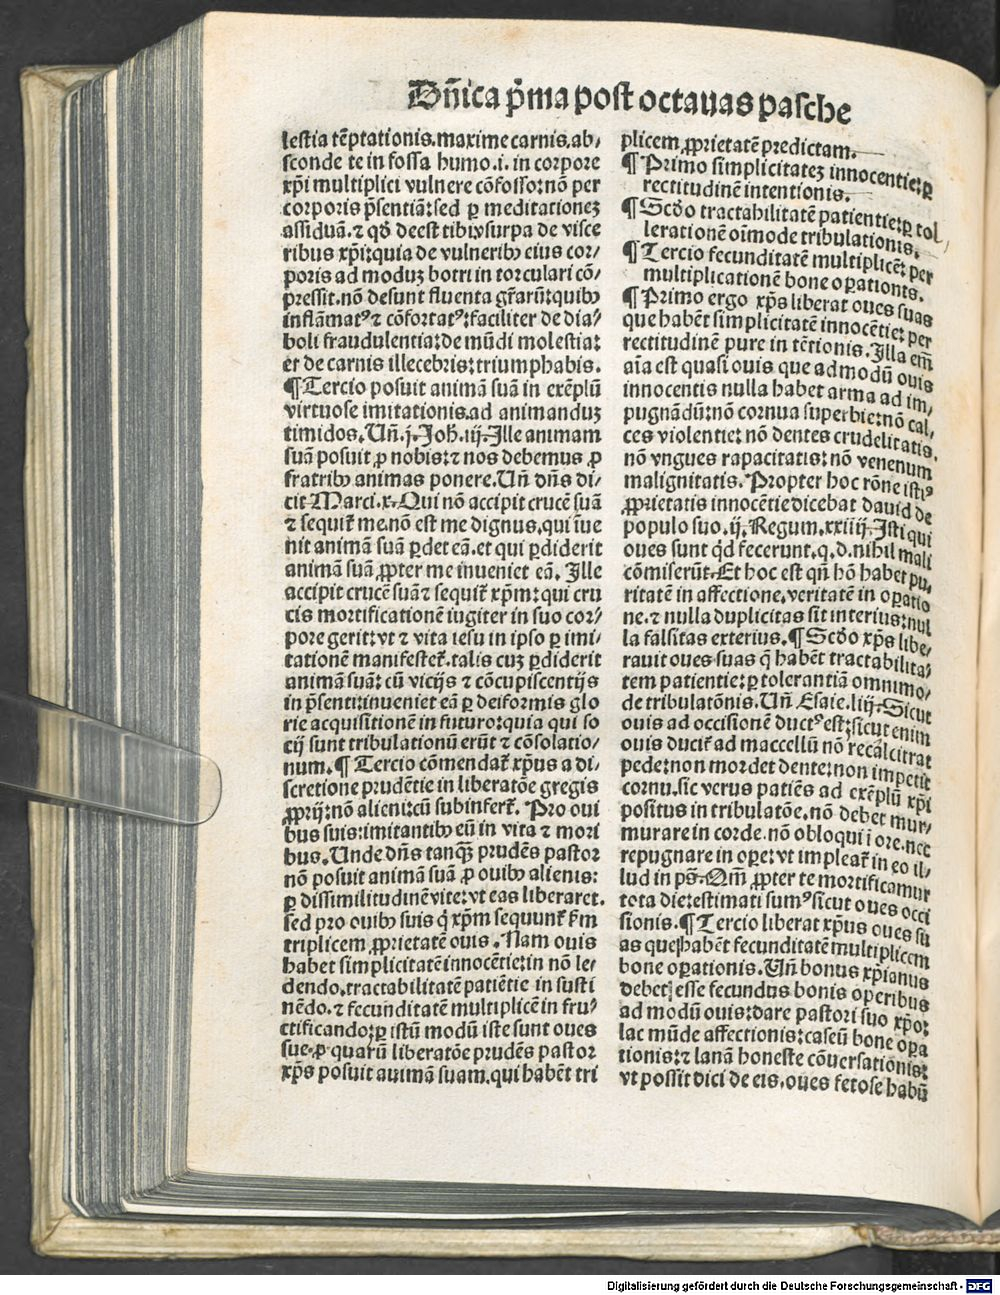 Dn̄ica p̄ma post octauas pasche
lestia tēptationis.maxime carnis,ab/
sconde te in fossa humo.i. in corpore
xp̄i multiplici vulnere cōfosso:nō per
corporis p̄sentiā:sed ꝑ meditationeʒ
assiduā.⁊ qḋ deest tibi vsurpa de visce
ribus xp̄i:quia de vulneribꝰ eius cor/
poris ad moduʒ botri in torculari cō/
pressit.nō desunt fluenta gr̄arū:quibꝰ
inflāmatꝰ ⁊ cōfortatꝰ:faciliter de dia/
boli fraudulentia:de mūdi molestia:
et de carnis illecebris:triumphabis.
¶Tercio posuit animā suā in exēplū
virtuose imitationis.ad animanduʒ
timidos.Un̄.j.Joh̄.iij.Ille animam
suā posuit ꝓ nobis:⁊ nos debemus ꝓ
fratribꝰ animas ponere.Un̄ dn̄s di/
cit Marci.x.Qui nō accipit crucē suā
⁊ sequit̄ me.nō est me dignus.qui īue
nit animā suā ꝑdet eā.et qui ꝑdiderit
animā suā ꝓpter me inueniet eā. Ille
accipit crucē suā ⁊ sequit̄ xp̄m:qui cru
cis mortificationē iugiter in suo cor/
pore gerit:vt ⁊ vita iesu in ipso ꝑ imi/
tationē manifestet̄.talis cuʒ ꝑdiderit
animā suā: cū vicijs ⁊ cōcupiscentijs
in p̄senti:inueniet eā ꝑ deiformis glo
rie acquisitionē in futuro:quia qui so
cij sunt tribulationū erūt ⁊ cōsolatio/
num.¶ Tercio cōmendat̄ xp̄us a di/
scretione prudētie in liberatōe gregis
ꝓprij:nō alieni:cū subinfert̄. Pro oui
bus suis:imitantibꝰ eū in vita ⁊ mori
bus.Unde dn̄s tanqʒ̄ prudēs pastor
nō posuit animā suā ꝓ ouibꝰ alienis:
ꝑ dissimilitudinē vite:vt eas liberaret.
sed pro ouibꝰ suis q̇ xp̄m sequunt̄ ẜm
triplicem ꝓprietatē ouis. Nam ouis
habet simplicitatē innocētie:in nō le/
dendo.tractabilitatē patiētie in susti
nēdo.⁊ fecunditatē multiplicē in fru/
ctificando:ꝑ istū modū iste sunt oues
sue.ꝓ quarū liberatōe prudēs pastor
xp̄s posuit animā suam.qui habēt tri
plicem ꝓprietatē predictam.
¶Primo simplicitateʒ innocentie:ꝑ
rectitudinē intentionis.
¶Scḋo tractabilitatē patientie:ꝑ tol/
lerationē oīmode tribulationis.
¶Tercio fecunditatē multiplicē: per
multiplicationē bone oꝑationis.
¶Primo ergo xp̄s liberat oues suas
que habēt simplicitatē innocētie: per
rectitudinē pure intētionis.Illa em̄
aīa est quasi ouis que admodū ouis
innocentis nulla habet arma ad im/
pugnādū:nō cornua superbie:nō cal/
ces violentie: nō dentes crudelitatis.
nō vngues rapacitatis:nō venenum
malignitatis.Propter hoc rōne istiꝰ
ꝓprietatis innocētie dicebat dauid de
populo suo.ij.Regum.xxiiij.Isti qui
oues sunt qḋ fecerunt.q.d.nihil mali
cōmiserūt.Et hoc est qn̄ hō habet pu/
ritatē in affectione.veritatē in oꝑatio
ne.⁊ nulla duplicitas sit interius:nul
la falsitas exterius.¶Scḋo xp̄s libe/
rauit oues suas q̄ habēt tractabilita/
tem patientie:ꝑ tolerantiā omnimo/
de tribulatōnis.Un̄ Esaie.liij.Sicut
ouis ad occisionē ductꝰ est:sicut enim
ouis ducit̄ ad maccellū nō recalcitrat
pede:non mordet dente:non impetit
cornu.sic verus patiēs ad exēplū xp̄i
positus in tribulatōe.nō debet mur/
murare in corde.nō obloqui ī ore.nec
repugnare in oꝑe:vt impleat̄ in eo il/
lud in ps̄.Qm̄ ꝓpter te mortificamur
tota die:estimati sumꝰ sicut oues occi
sionis.¶Tercio liberat xp̄us oues su
as que habēt fecunditatē multiplicem
bone oꝑationis.Un̄ bonus xp̄ianus
debet esse fecundus bonis operibus
ad modū ouis:dare pastori suo xp̄o:
lac mūde affectionis:caseū bone oꝑa
tionis:⁊ lanā honeste cōuersationis:
vt possit dici de eis.oues fetose habū
Digitalisierung gefördert durch die Deutsche Forschungsgemeinschaft - DFG